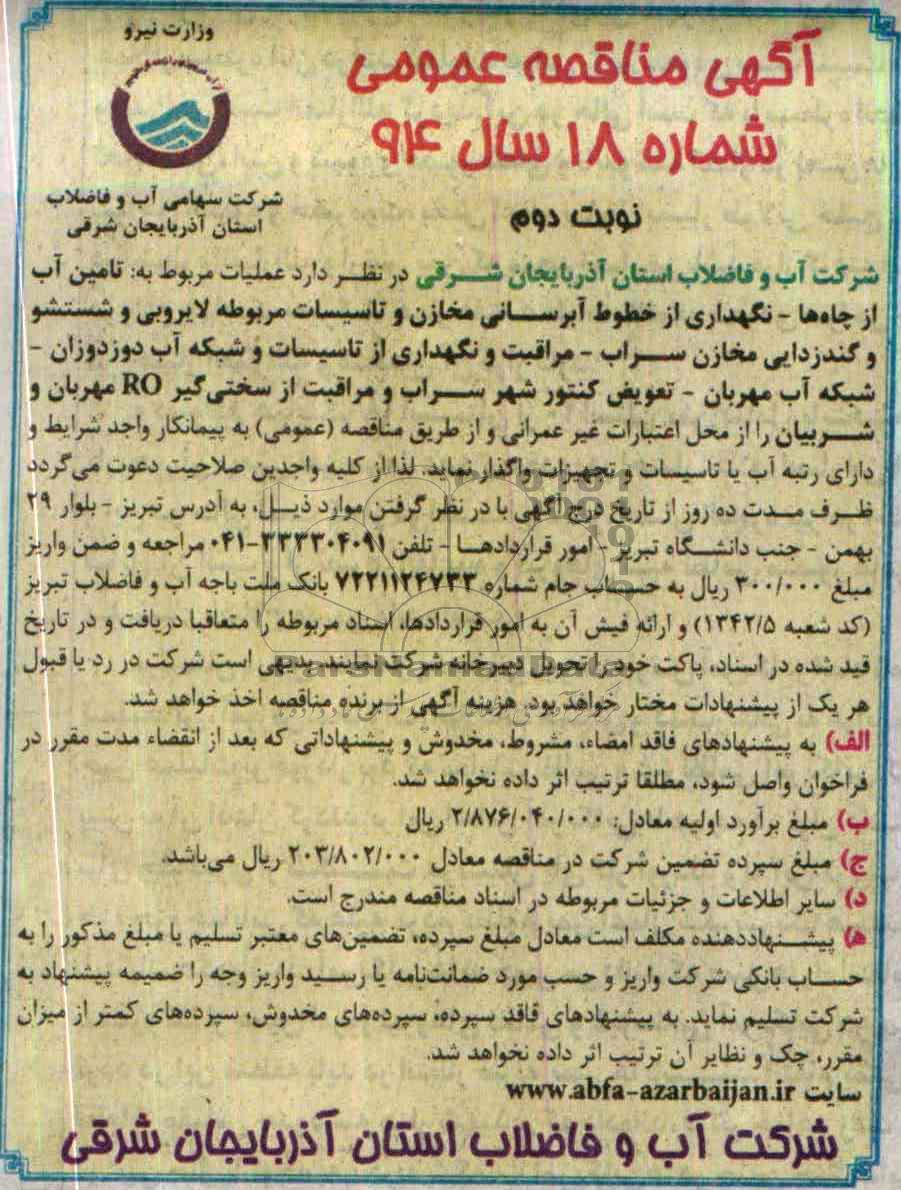 وزارت نیرو
شرکت سهامی آب و فاضلاب
استان آذربایجان شرقی
آگهی مناقصه عمومی
شماره ۱۸ سال ۹۴
نوبت دوم
شرکت آب و فاضلاب استان آذربایجان شـــرقی در نظـــر دارد عملیات مربوط به: تامین آب
از چاه‌ها - نگهداری از خطوط آبرســـانی مخازن و تاسیسات مربوطه لایروبی و شستشو
و گندزدایی مخازن ســـراب - مراقبت و نگهداری از تاسیسات و شبکه آب دوزدوزان -
شبکه آب مهربان - تعویض کنتور شهر ســـراب و مراقبت از سختی‌گیر RO مهربان و
شـــربیان را از محل اعتبارات غیر عمرانی و از طریق مناقصه (عمومی) به پیمانکار واجد شرایط و
دارای رتبه آب یا تاسیسات و تجهیزات واگذار نماید. لذا از کلیه واجدین صلاحیت دعوت می‌گردد
ظـــرف مـــدت ده روز از تاریخ درج آگهی با در نظر گرفتن موارد ذیـــل، به آدرس تبریز - بلوار ۲۹
بهمن - جنب دانشـــگاه تبریز - امور قراردادهـــا - تلفن ۳۳۳۳۰۴۰۹۱-۰۴۱ مراجعه و ضمن واریز
مبلغ ۳۰۰/۰۰۰ ریال به حســـاب جام شماره ۷۲۲۱۱۲۴۷۳۳ بانک ملت باجه آب و فاضلاب تبریز
(کد شعبه ۱۳۴۲/۵) و ارائه فیش آن به امور قراردادها، اسناد مربوطه را متعاقبا دریافت و در تاریخ
قید شده در اسناد، پاکت خود را تحویل دبیرخانه شرکت نمایند. بدیهی است شرکت در رد یا قبول
هر یک از پیشنهادات مختار خواهد بود. هزینه آگهی از برنده مناقصه اخذ خواهد شد.
الف) به پیشنهادهای فاقد امضاء، مشروط، مخدوش و پیشنهاداتی که بعد از انقضاء مدت مقرر در
فراخوان واصل شود، مطلقا ترتیب اثر داده نخواهد شد.
ب) مبلغ برآورد اولیه معادل: ۲/۸۷۶/۰۴۰/۰۰۰ ریال
ج) مبلغ سپرده تضمین شرکت در مناقصه معادل ۲۰۳/۸۰۲/۰۰۰ ریال می‌باشد.
د) سایر اطلاعات و جزئیات مربوطه در اسناد مناقصه مندرج است.
ه) پیشـــنهاددهنده مکلف است معادل مبلغ سپرده، تضمین‌های معتبر تسلیم یا مبلغ مذکور را به
حساب بانکی شرکت واریز و حسب مورد ضمانت‌نامه یا رســـید واریز وجه را ضمیمه پیشنهاد به
شرکت تسلیم نماید. به پیشنهادهای فاقد سپرده، سپرده‌های مخدوش، سپرده‌های کمتر از میزان
مقرر، چک و نظایر آن ترتیب اثر داده نخواهد شد.
سایت www.abfa-azarbaijan.ir
شرکت آب و فاضلاب استان آذربایجان شرقی
ParsNamadData